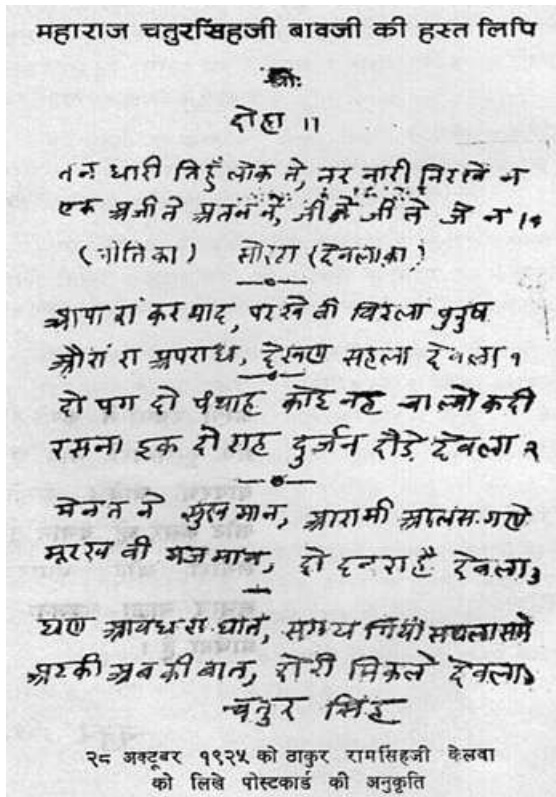 महाराज चतुरसिंहजी बावजी की हस्त लिपि
श्रीः
दोहा ॥
तन धारी त्रिहुँ लोक ने, नर नारी निरखे न
एक अजीते आतम ने, जीने जे न
(नीतिका) सोरठा (देवलाका)
आपा रां कर याद, परखे वी विरला पुरुष
औरां रा अपराध, देखण सहला देवला १
दो पग दो पंथाह कोई नह चाल्यो कदी
रसना इक दो राह दुर्जन दौड़े देवला २
मेनत ने सुख मान, आरामी आलस गणे
मूरख वी मजमान, दो दनरा है देवला ३
घण आवध रा घात, समय
अटकी अबकी बात, दोरी निकले देवला
चतुर सिंह
२८ अक्टूबर १९२५ को ठाकुर रामसिंहजी केलवा
को लिखे पोस्टकार्ड की अनुकृति